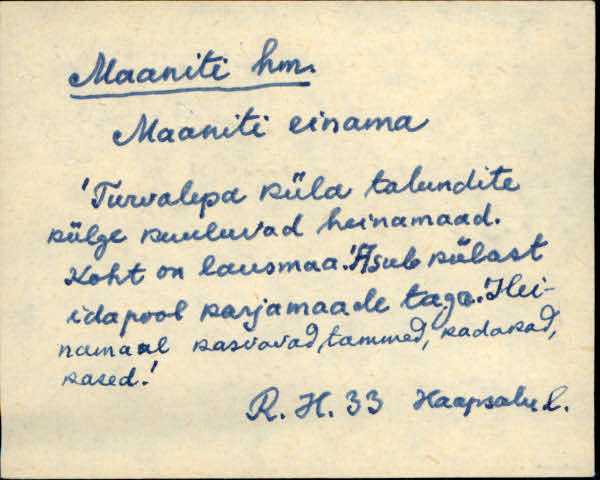 Maaniti hm.
Maaniti einama
'Turvalepa küla talundite
külge kuuluvad heinamaad.
Koht on lausmaa.' Asub külast
idapool karjamaade taga. 'Hei-
namaal kasvavad, tammed, kadakad,
kased.'
R. H. 33 Haapsalu l.